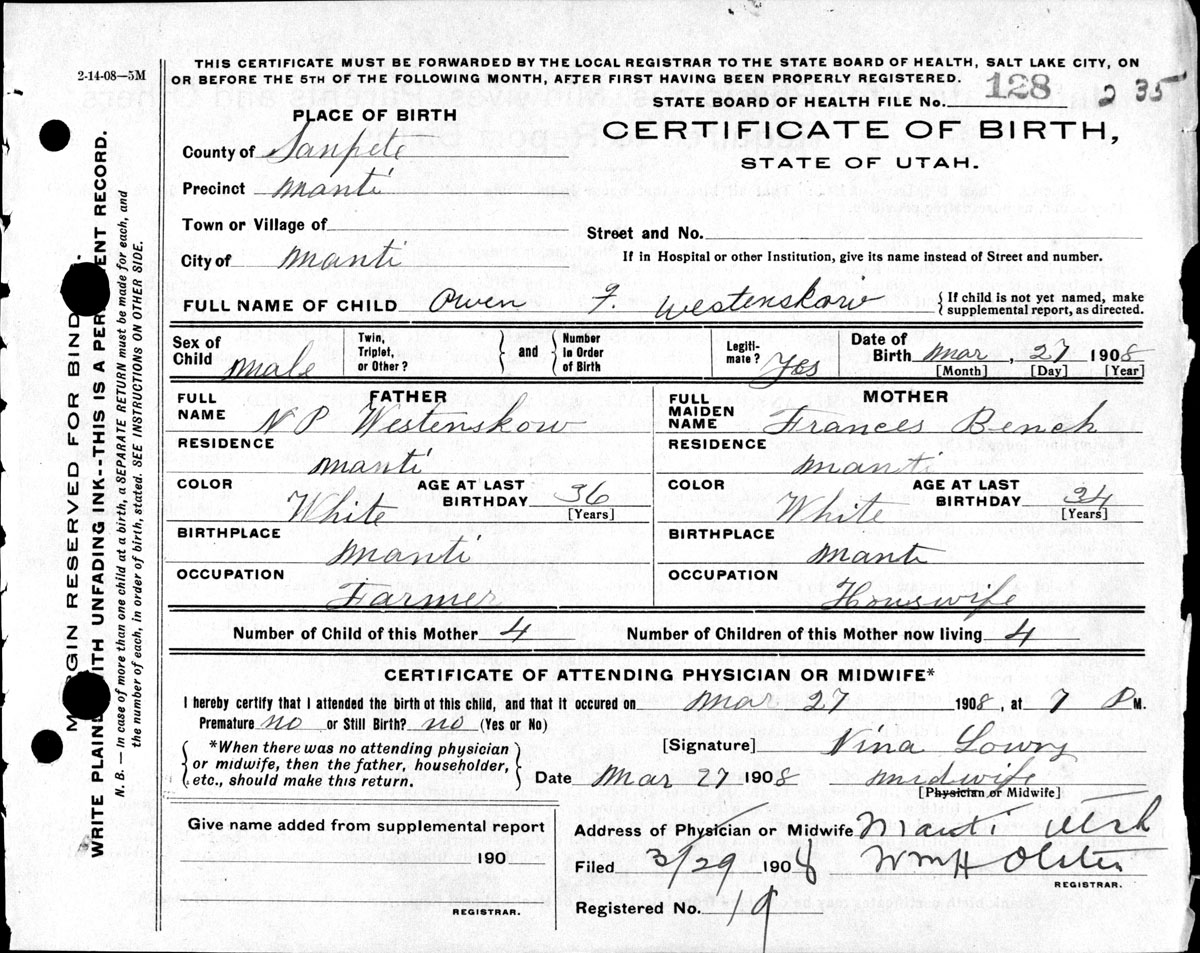 2-14-08—5M
THIS CERTIFICATE MUST BE FORWARDED BY THE LOCAL REGISTRAR TO THE STATE BOARD OF HEALTH, SALT LAKE CITY, ON
OR BEFORE THE 5TH OF THE FOLLOWING MONTH, AFTER FIRST HAVING BEEN PROPERLY REGISTERED.
STATE BOARD OF HEALTH FILE No. 128 235
PLACE OF BIRTH
CERTIFICATE OF BIRTH,
STATE OF UTAH.
County of Sanpete
Precinct Manti
Town or Village of
Street and No.
City of Manti
If in Hospital or other Institution, give its name instead of Street and number.
FULL NAME OF CHILD Owen F. Westenskow {If child is not yet named, make supplemental report, as directed.
Sex of Child Male Twin, Triplet, or Other? } and { Number in Order of Birth Legiti-mate? Yes Date of Birth Mar, 27 1908
[Month] [Day] [Year]
FATHER
MOTHER
FULL NAME N P Westenskow
FULL MAIDEN NAME Frances Bench
RESIDENCE Manti
RESIDENCE Manti
COLOR White AGE AT LAST BIRTHDAY 36 [Years]
COLOR White AGE AT LAST BIRTHDAY 34 [Years]
BIRTHPLACE Manti
BIRTHPLACE Manti
OCCUPATION Farmer
OCCUPATION Houswife
Number of Child of this Mother 4 Number of Children of this Mother now living 4
CERTIFICATE OF ATTENDING PHYSICIAN OR MIDWIFE*
I hereby certify that I attended the birth of this child, and that it occured on Mar 27 1908, at 7 P M.
Premature no or Still Birth? no (Yes or No)
{*When there was no attending physician
or midwife, then the father, householder,
etc., should make this return.}
[Signature] Nina Lowry
Date Mar 27 1908 midwife
[Physician or Midwife]
Give name added from supplemental report
190
REGISTRAR.
Address of Physician or Midwife Manti Utah
Filed 3/29 1908 Wm H Olsten
REGISTRAR.
Registered No. 19
WRITE PLAIN ITH UNFADING INK--THIS IS A PER ENT RECORD.
M GIN RESERVED FOR BIND
N. B. — In case of more than one child at a birth, a SEPARATE RETURN must be made for each, and
the number of each, in order of birth, stated. SEE INSTRUCTIONS ON OTHER SIDE.